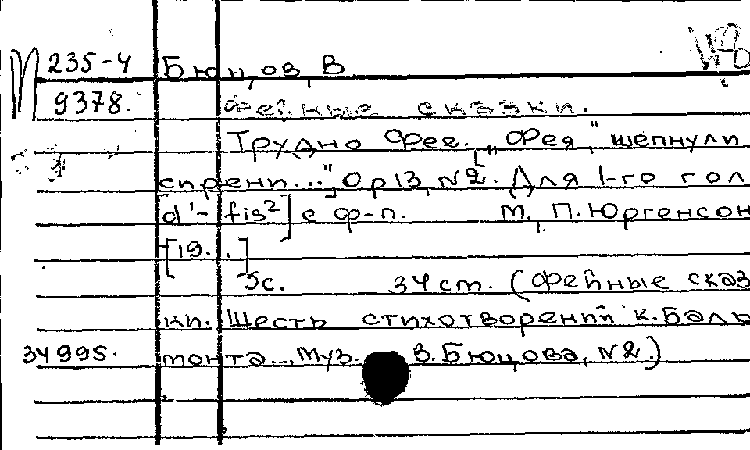 П 235-4 Бюцов, В
9378. Фейные сказки.
Трудно Фее. "Фея," шепнули
сирени...", Op13, №2. Для 1-го гол
[d'-fis²] с ф-п. М., П. Юргенсон
[19..]
5с. 34 ст. (Фейные сказ
ки. Шесть стихотворений К. Баль
34995. монта... Муз. В. Бюцова, №2.)